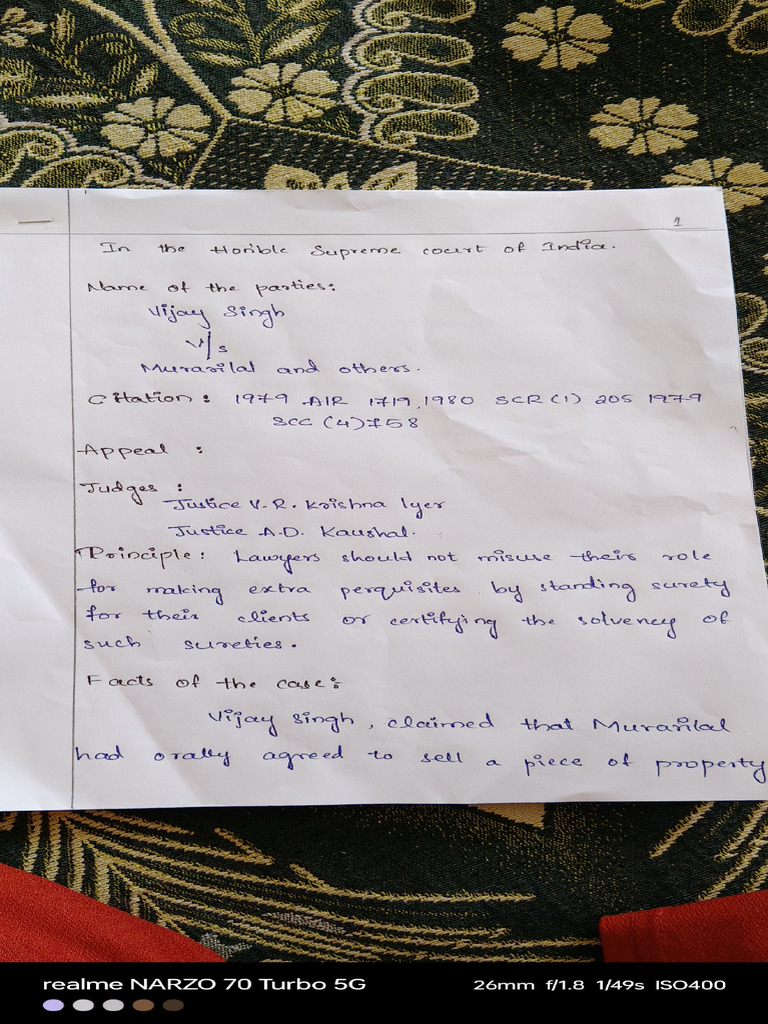 1
In the Hon'ble Supreme court of India.
Name of the parties:
Vijay Singh
V/s
Murarilal and others.
Citation: 1979 AIR 1719, 1980 SCR (1) 205 1979
SCC (4) 758
Appeal :
Judges :
Justice V. R. Krishna Iyer
Justice A.D. Kaushal.
Principle: Lawyers should not misuse their role
for making extra perquisites by standing surety
for their clients or certifying the solvency of
such sureties.
Facts of the case:
Vijay Singh, claimed that Murarilal
had orally agreed to sell a piece of property
realme NARZO 70 Turbo 5G
26mm f/1.8 1/49s ISO400